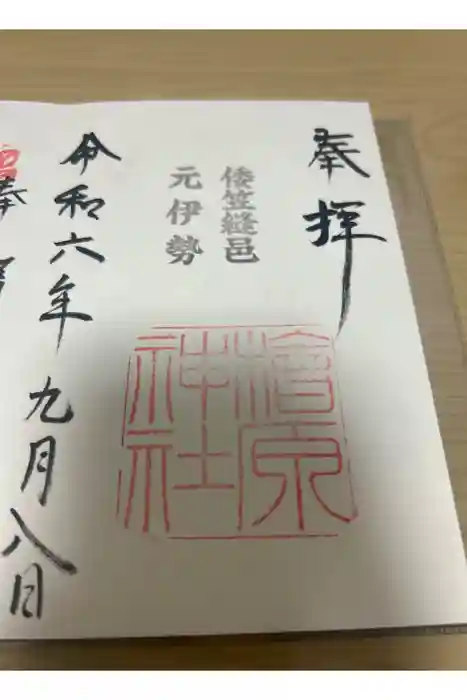 奉拝
倭笠縫邑
元伊勢
檜原
神社
令和六年九月八日
奉